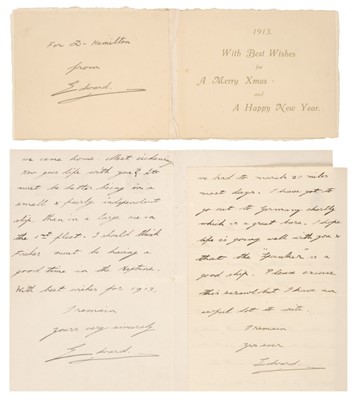 For D- Hamilton
from
Edward.
1913.
With Best Wishes
for
A Merry Xmas
and
A Happy New Year.
we come home. Most
your life with you? It
must be better being in a
small & fairly independent
ship than in a large one in
the 1st fleet. I should think
Fisher must be having a
good time in the Neptune.
With best wishes for 1912.
I remain
yours very sincerely
Edward.
we had to march 21 miles
most days. I have got to
go out to Germany shortly
which is a great bore. I hope
life is going well with you &
that the is a
good ship. Please excuse
this scrawl but I have an
awful lot to write.
I remain
Yrs ever
Edward.